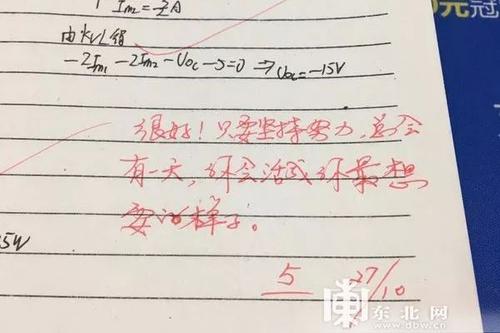 Im2=2A
由KVL得
-2Im1-2Im2-Uoc-5=0 ⇒ Uoc=-15V
很好！只要坚持努力，总会
有一天，你会活成你最想
要的样子。
5W
5 27/10
元冠
东北网
www.dbw.cn